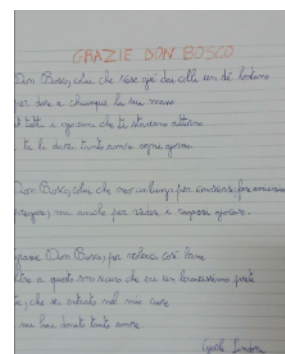 GRAZIE DON BOSCO
Don Bosco, colui che scese giù dai colli un dì lontano
per dare a chiunque la sua mano
tutti i giovani che ti stavano attorno
tu li davi tanto amore ogni giorno.
Don Bosco, colui che creò un luogo per
pregare, ma anche per ridere e sapere giocare.
grazie Don Bosco, per volerci così bene
oltre a questo sono sicuro che eri un bravissimo prete
te, che sei entrato nel mio cuore
mi hai donato tanto amore.